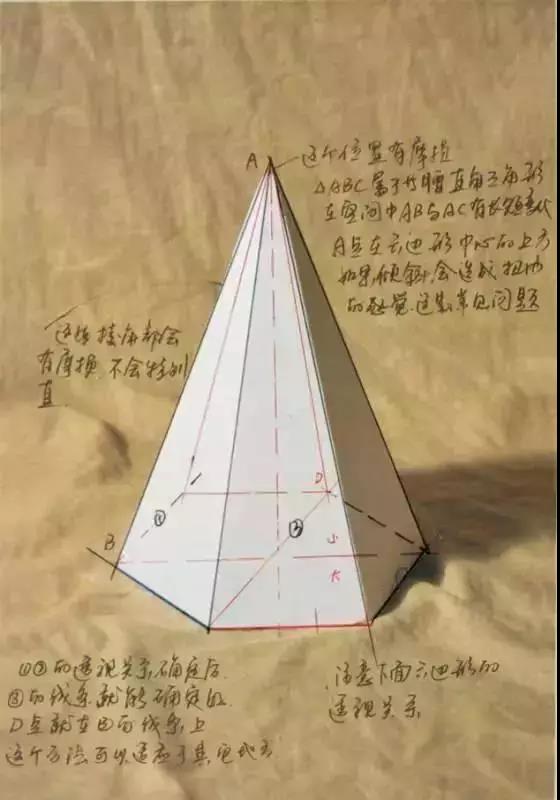 A
这个位置有磨损
△ABC属于等腰直角三角形
在空间中AB与AC有长短变化
A点在六边形中心的上方
如果倾斜,会造成扭曲
的感觉.这是常见问题
这些棱角都会
有磨损.不会特别
直
D
B
①
③
小
大
①②的透视关系确定后
③的线条就能确定好
D点就在③的线条上
这个方法可以适应于其它地方
注意下面六边形的
透视关系